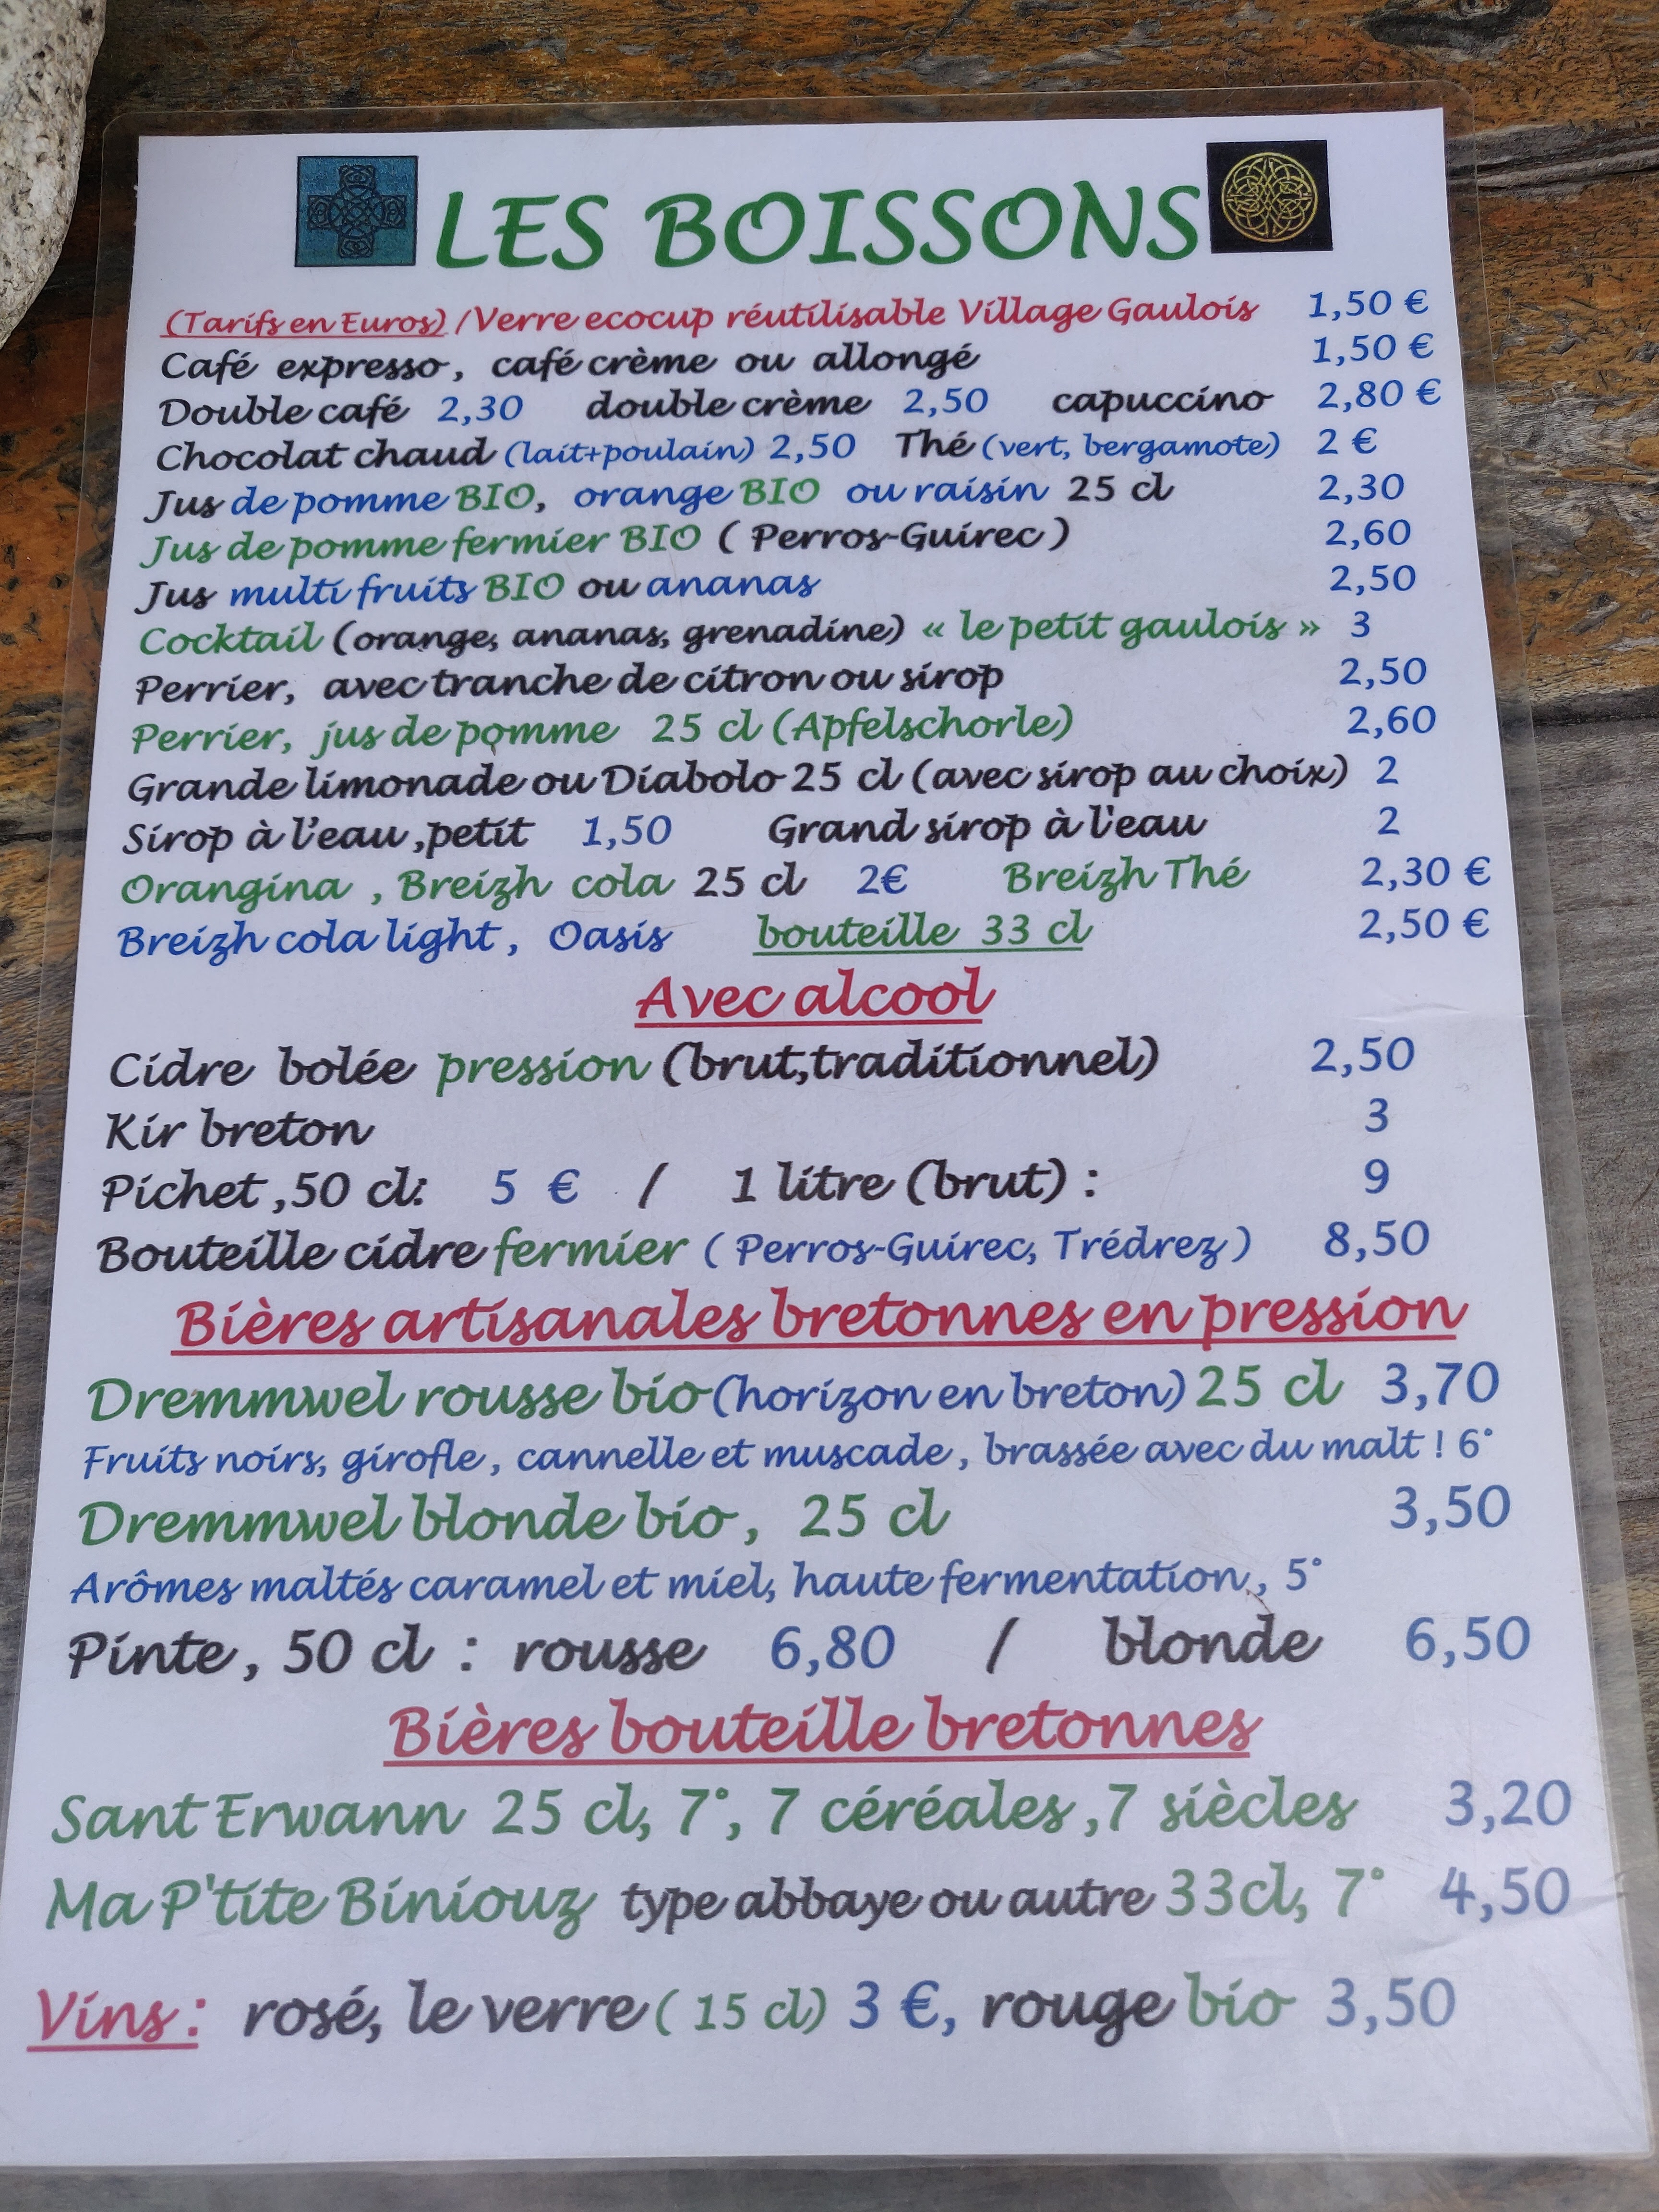 LES BOISSONS
(Tarifs en Euros) /Verre ecocup réutilisable Village Gaulois 1,50 €
Café expresso, café crème ou allongé 1,50 €
Double café 2,30 double crème 2,50 capuccino 2,80 €
Chocolat chaud (lait+poulain) 2,50 Thé (vert, bergamote) 2 €
Jus de pomme BIO, orange BIO ou raisin 25 cl 2,30
Jus de pomme fermier BIO ( Perros-Guirec ) 2,60
Jus multi fruits BIO ou ananas 2,50
Cocktail (orange, ananas, grenadine) « le petit gaulois » 3
Perrier, avec tranche de citron ou sirop 2,50
Perrier, jus de pomme 25 cl (Apfelschorle) 2,60
Grande limonade ou Diabolo 25 cl (avec sirop au choix) 2
Sirop à l'eau ,petit 1,50 Grand sirop à l'eau 2
Orangina , Breizh cola 25 cl 2€ Breizh Thé 2,30 €
Breizh cola light , Oasis bouteille 33 cl 2,50 €
Avec alcool
Cidre bolée pression (brut,traditionnel) 2,50
Kir breton 3
Pichet ,50 cl: 5 € / 1 litre (brut) : 9
Bouteille cidre fermier ( Perros-Guirec, Trédrez ) 8,50
Bières artisanales bretonnes en pression
Dremmwel rousse bio (horizon en breton) 25 cl 3,70
Fruits noirs, girofle , cannelle et muscade , brassée avec du malt ! 6°
Dremmwel blonde bio , 25 cl 3,50
Arômes maltés caramel et miel, haute fermentation , 5°
Pinte , 50 cl : rousse 6,80 / blonde 6,50
Bières bouteille bretonnes
Sant Erwann 25 cl, 7°, 7 céréales ,7 siècles 3,20
Ma P'tite Biniouz type abbaye ou autre 33cl, 7° 4,50
Vins : rosé, le verre ( 15 cl) 3 €, rouge bio 3,50